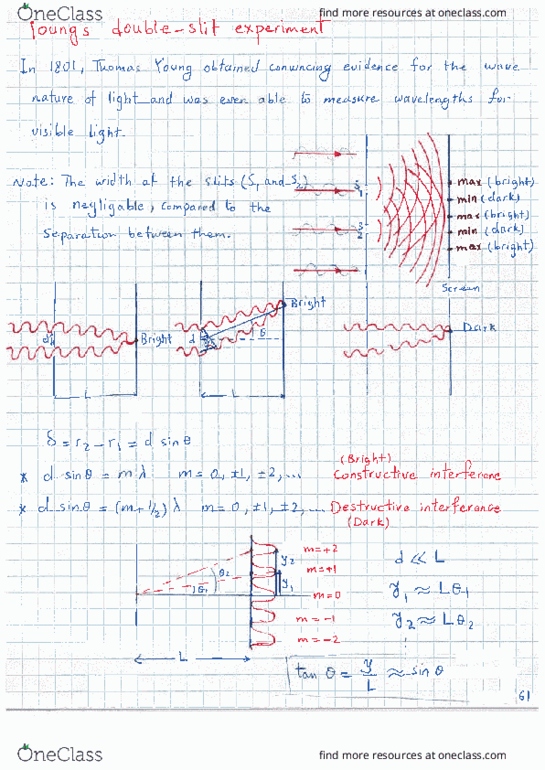 OneClass
find more resources at oneclass.com
Young's double-slit experiment
In 1801, Thomas Young obtained convincing evidence for the wave
nature of light and was even able to measure wavelengths for
visible light.
Note: The width at the slits (S1 and S2)
is negligable, compared to the
Separation between them.
S1
S2
max (bright)
min (dark)
max (bright)
min (dark)
max (bright)
Screen
d
Bright
L
d
θ
Bright
L
Dark
δ = r2 - r1 = d sinθ
* d sinθ = mλ m = 0, ±1, ±2, ... (Bright) Constructive interference
* d sinθ = (m+1/2) λ m = 0, ±1, ±2, ... Destructive interference
(Dark)
m=+2
m=+1
m=0
m=-1
m=-2
θ2
θ1
y2
y1
L
d ≪ L
y1 ≈ Lθ1
y2 ≈ Lθ2
tan θ = y/L ≈ sin θ
61
OneClass
find more resources at oneclass.com